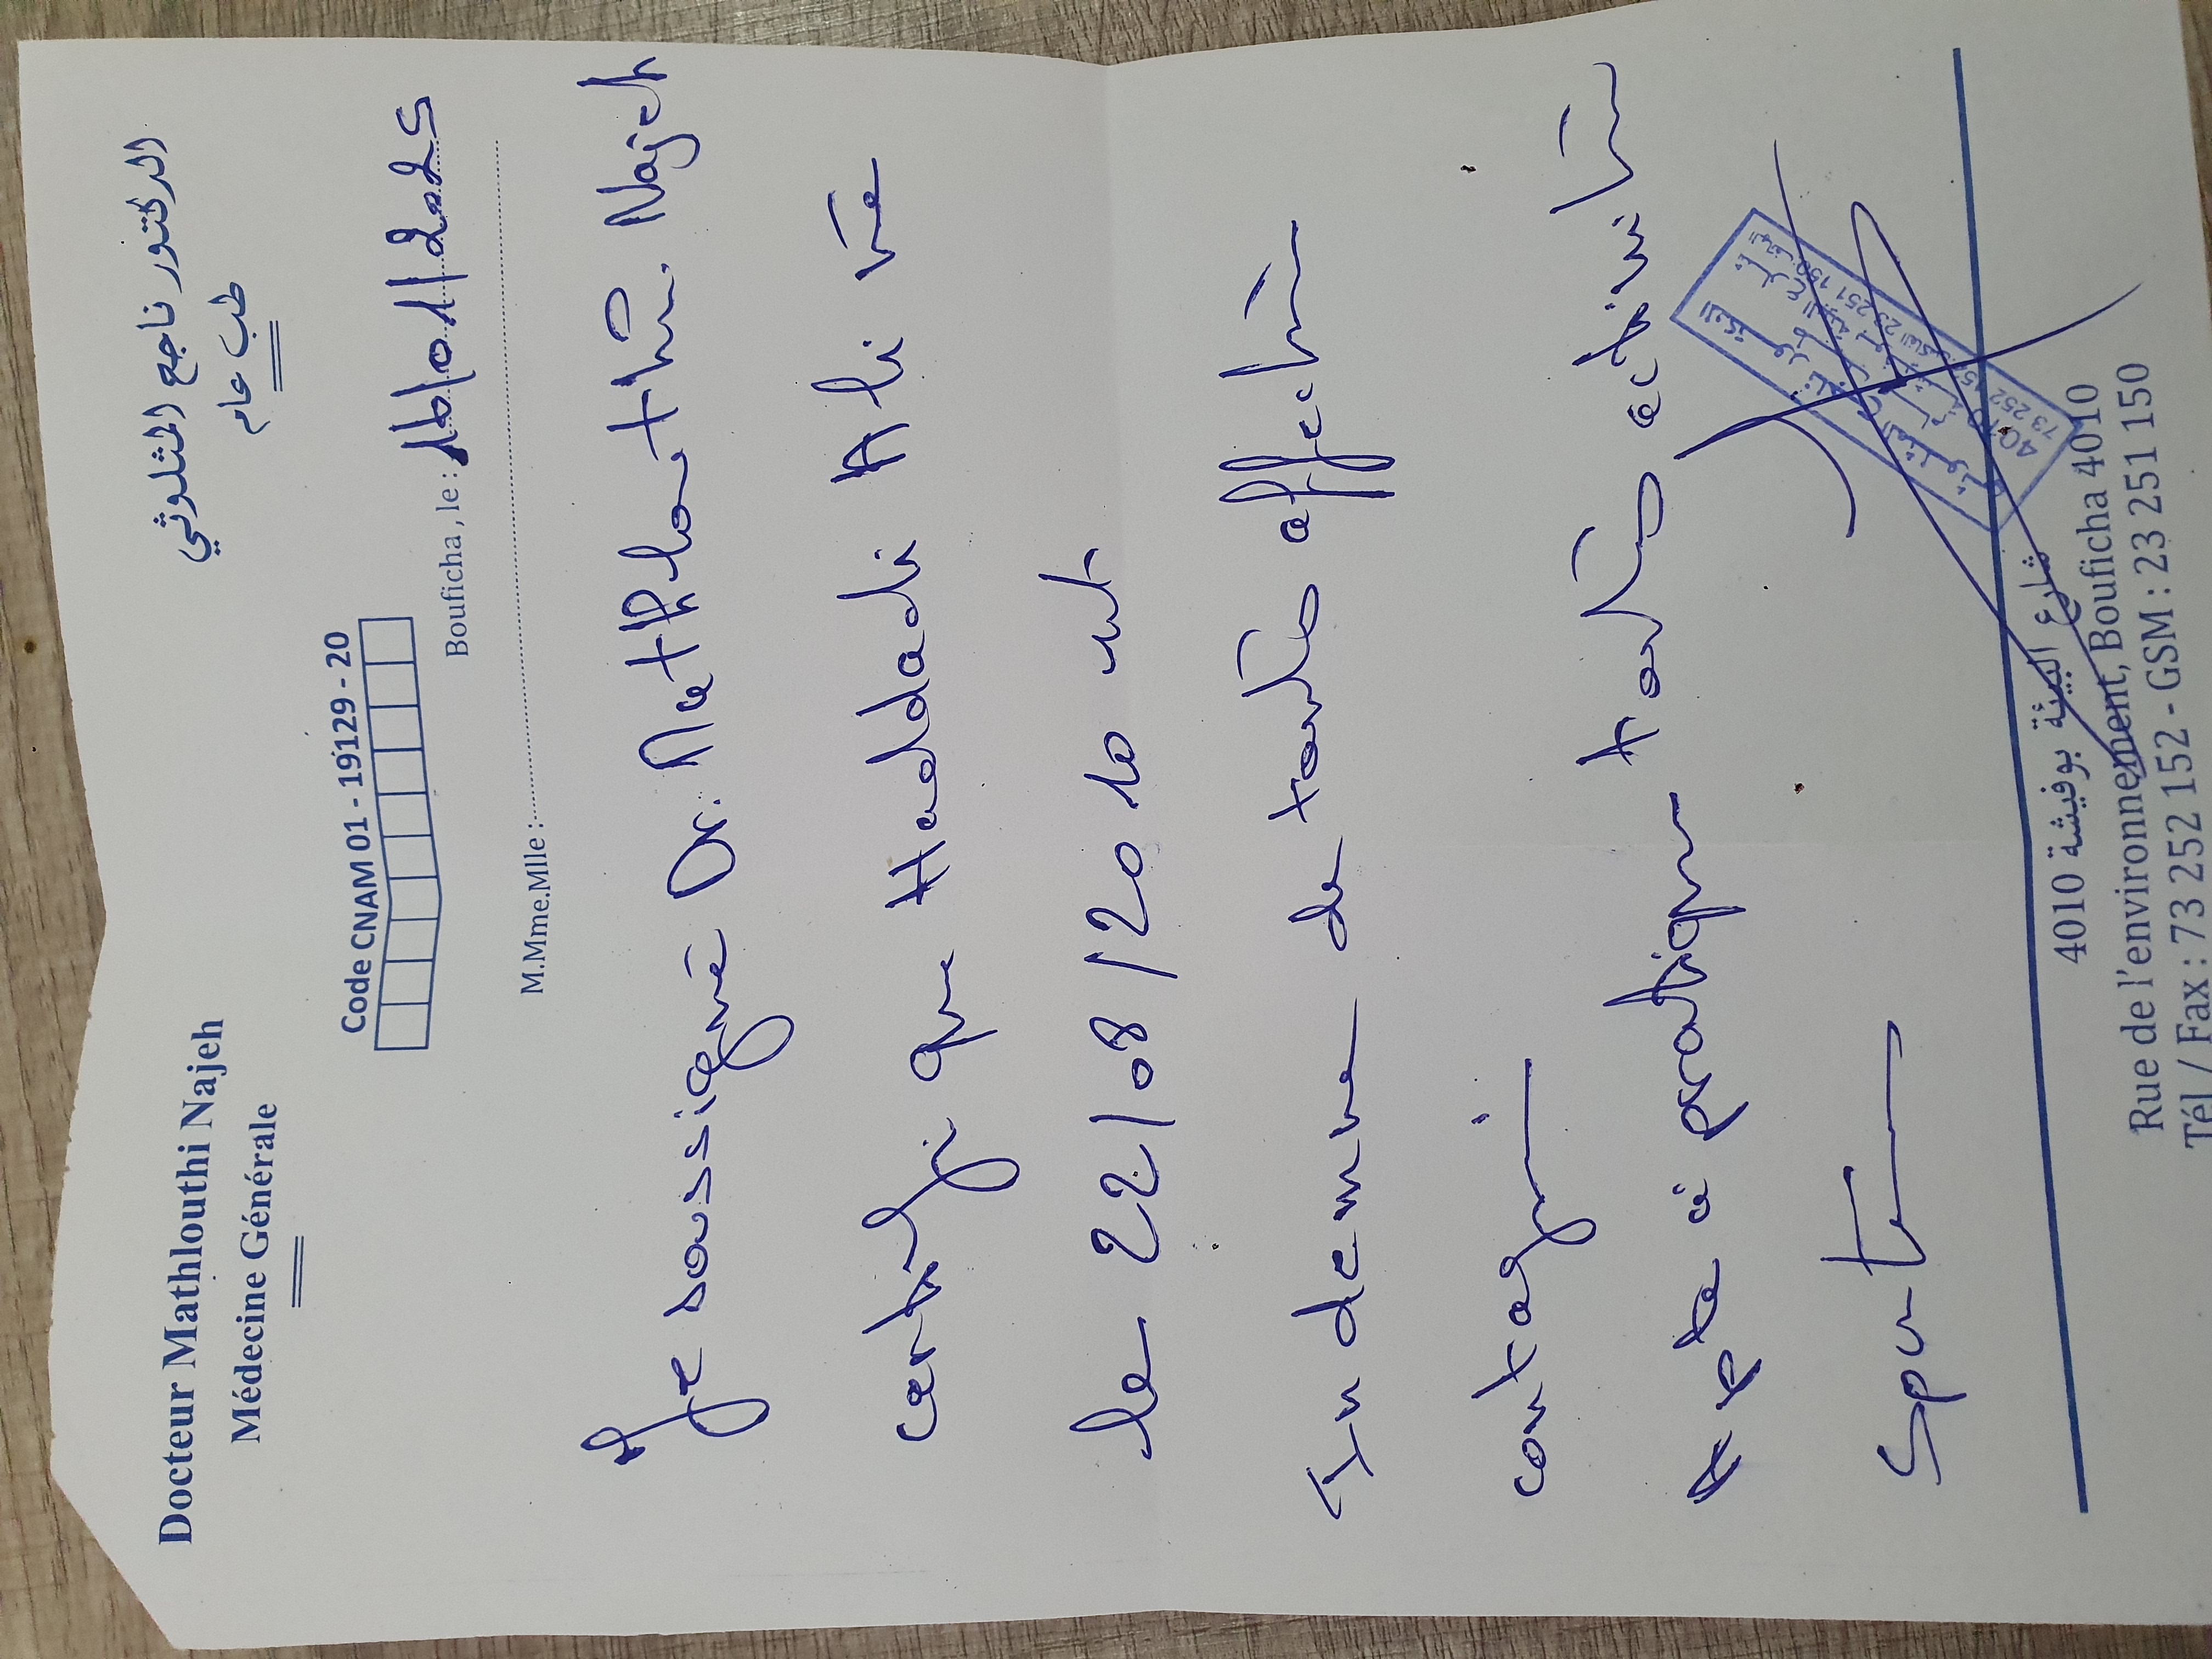 Docteur Mathlouthi Najeh
Médecine Générale
الدكتور ناجح المثلوثي
طب عام
Code CNAM 01 - 19129 - 20
Bouficha, le : 16/01/2025
M.Mme.Mlle :
Je soussigné Dr. Mathlouthi Najeh
certifie que Haddadi Ali né
le 22/08/2010 est
Indemne de toute affection
contagi
Apte à pratiquer toute activité
sportive
شارع البيئة بوفيشة 4010
Rue de l'environnement, Bouficha 4010
Tél / Fax : 73 252 152 - GSM : 23 251 150